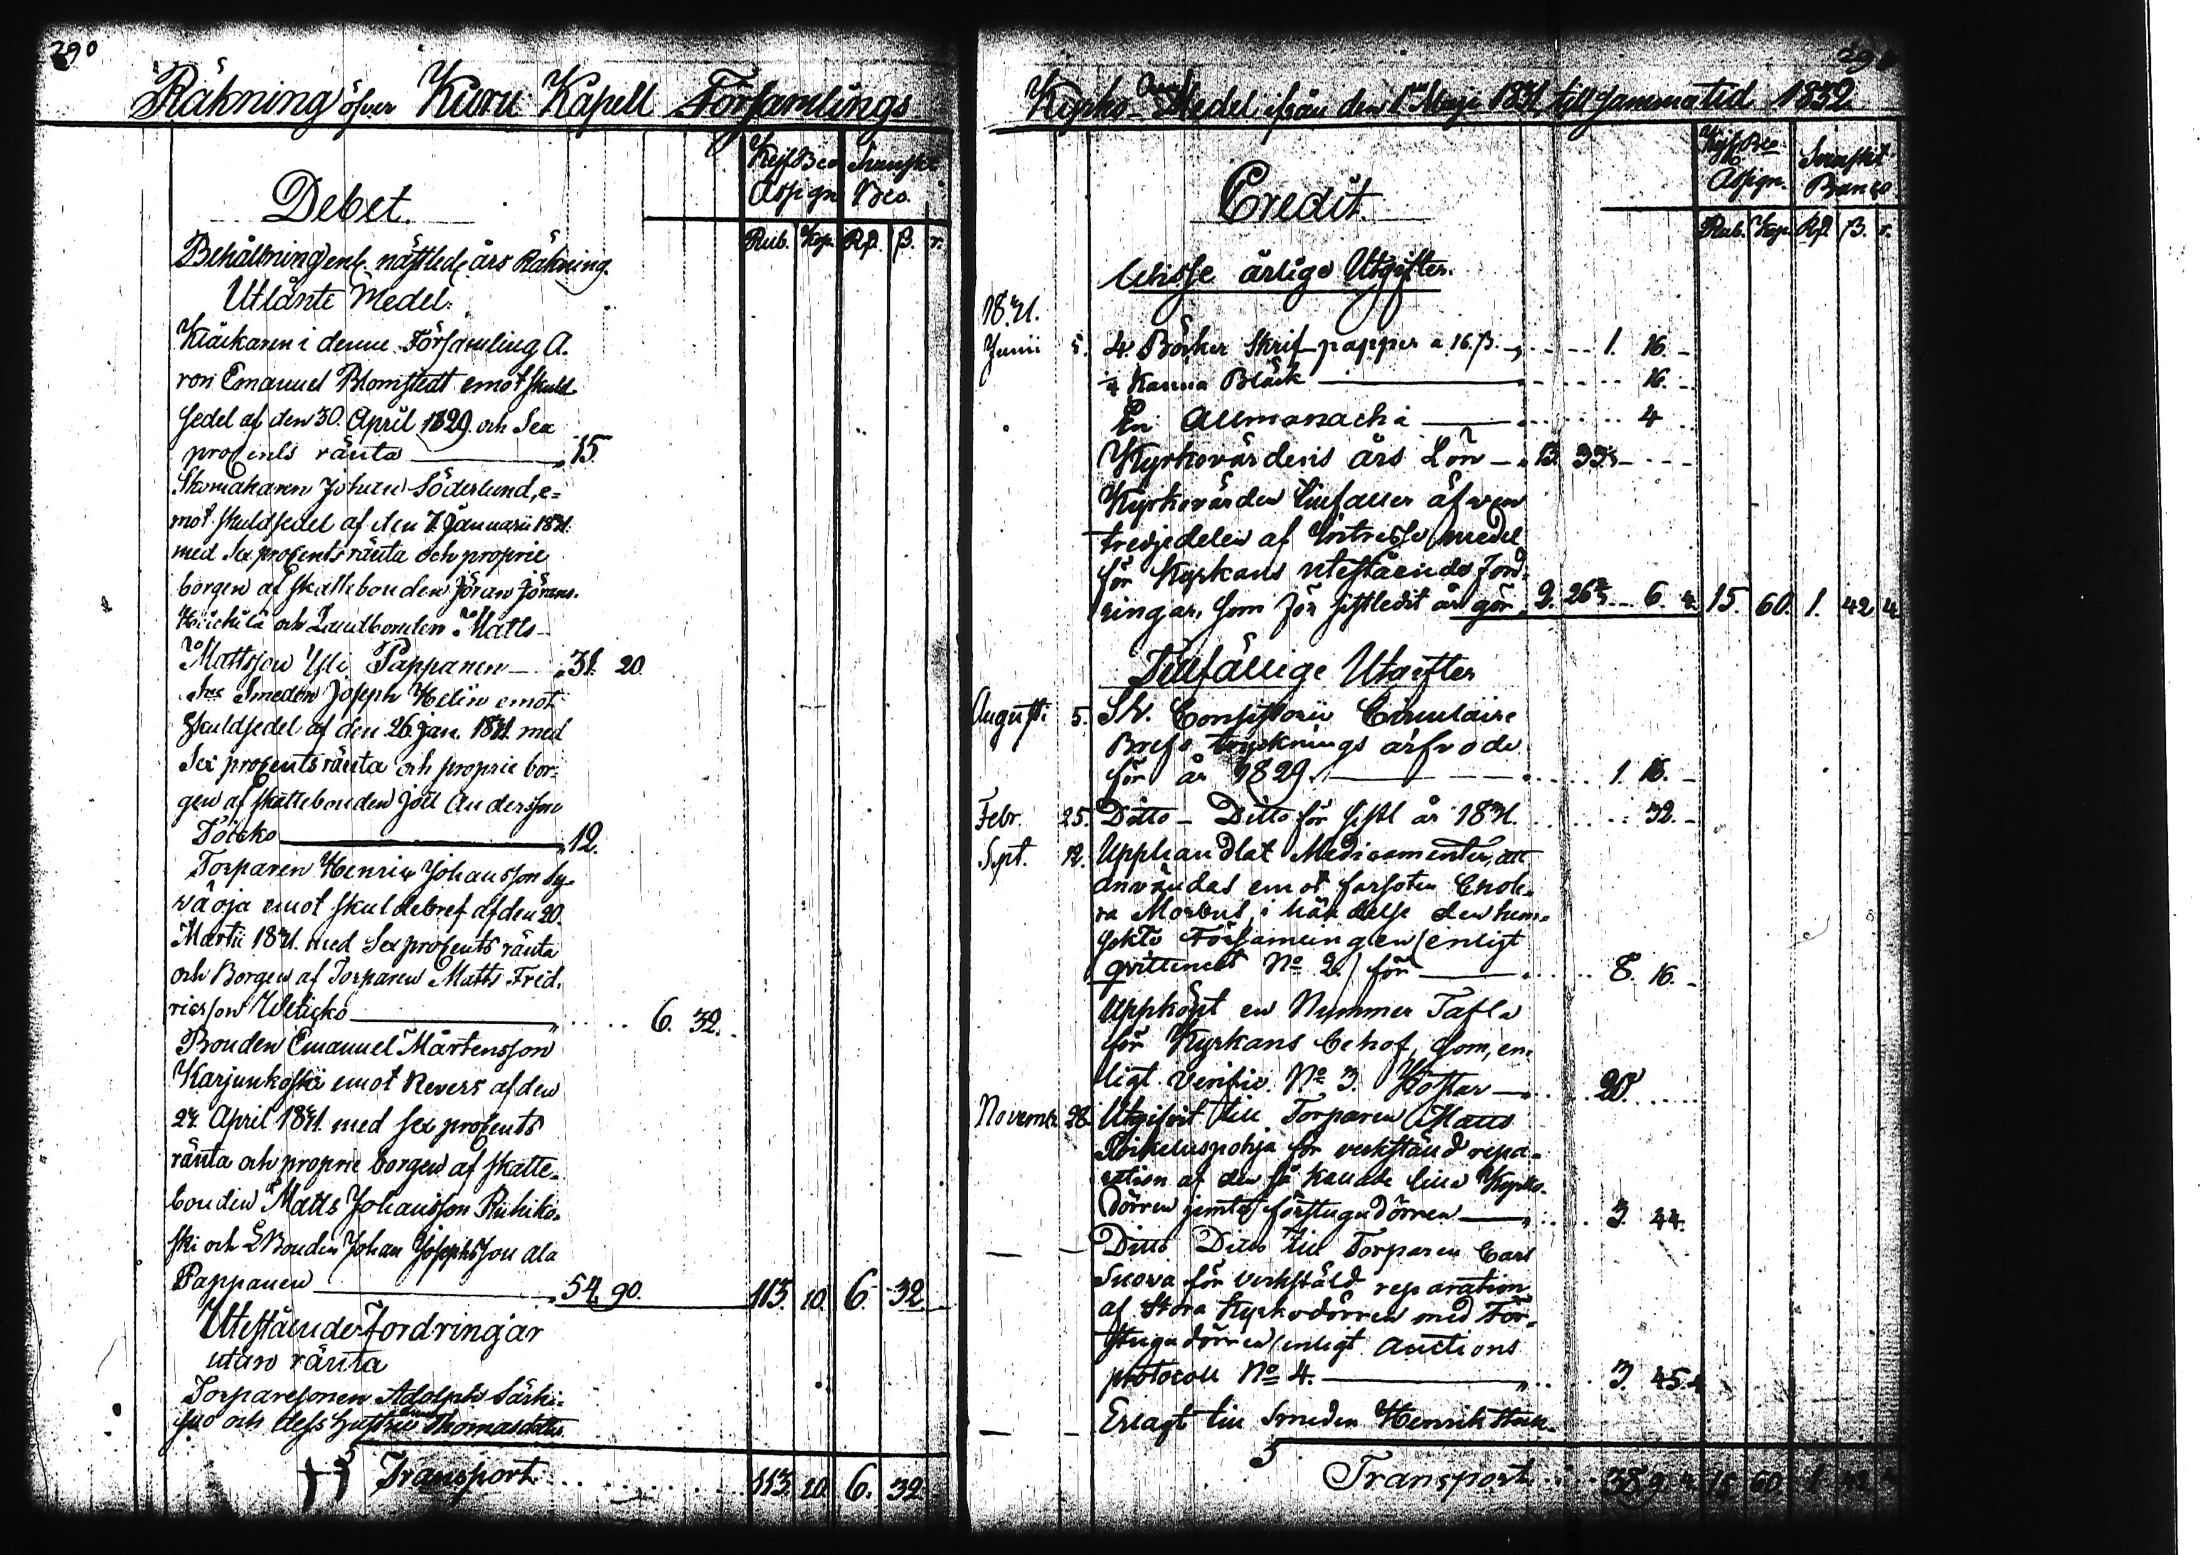 290
Räkning öfver Kuru Kapell Församlings
Kejs Bco Svensk
Assign Bco.
Debet.
Rub. Kop. Rd. ß. r.
Behållning enl. nästled. års Räkning.
Utlånte Medel.
Klåckaren i denne Församling A.
ron Emanuel Blomstedt emot skuld
sedel af den 30. April 1829. och Sex
procents ränta 15.
Skomakaren Johan Söderlund, e=
mot skuldsedel af den 7. Januarii 1831.
med Sex procents ränta och proprie
borgen af skattebonden Jöran Jörans.
och Landbonden Matts
Mattsson Yli Pappanen 31. 20
Smeden Joseph Helin emot
skuldsedel af den 26. Jan. 1831. med
Sex procents ränta och proprie bor-
gen af skattebonden Joel Andersson
Töicko 12.
Torparen Henric Johansson Sy-
väoja emot skuldebref af den 20.
Martii 1831. med Sex procents ränta
och Borgen af Torparen Matts Fred.
ricsson 6. 32.
Bonden Emanuel Mårtensson
Karjunkoski emot Revers af den
27. April 1831. med sex procents
ränta och proprie borgen af skatte-
bonden Matts Johansson Riihiko-
ski och LBonden Johan Josephsson Ala
Pappanen 54. 90. 113. 10. 6. 32.
Utestående Fordringar
utan ränta
Torparesonen Adolph Särki-
suo och dess hustru Thomasdotter
Transport 113. 10. 6. 32.
291
Kyrko Medel ifrån den 1 Maji 1831 till samma tid 1832.
Kejs Bco Svenskt
Assign. Banco
Credit.
Rub. Kop. Rd. ß. r.
Wisse årlige Utgifter.
1831.
Junii 5. 4. Böcker Skrif papper a 16. ß. 1. 16. -
Kanna Bläck 16. -
En Allmanacha 4
Kyrkovärdens års Lön 13. 33
Kyrkovärden tillfaller äfven
tredjedelen af Intresse medel
för Kyrkans utestående Ford-
ringar, som för sistledit år gör 2. 26 6. 4. 15. 60. 1. 42. 4
Tillfällige Utgifter
Augusti 5. Consistorii Circulaire
Brefs trycknings arfvode
för år 1829. 1. 16. -
Febr. 25. Ditto - Ditto för sistl år 1831. 32. -
Sept. 12. Upphandlat Medicamenter, att
användas emot farsoten Chole-
ra Morbus, i händelse den hem-
sökte Församlingen (enligt
qvittencet No 2.) för 8. 16. -
Uppköpt en Nummer Tafla
för Kyrkans behof, som, en-
ligt Verific. No 3. kostar 20.
Novemb. 28. Utgifvit till Torparen Matts
för verkstäld repa-
ration af den så kallade lilla Kyrko-
dörren jemte förstugudörren 3. 44.
— — Ditto Ditto till Torparen Carl
Suova för verkstäld reparation
af Stora Kyrkodörren med För-
stugudörren enligt Auctions
protocoll No 4. 3. 45. 4
— — Erlagt till Smeden Henrik
Transport 38. 9. 4. 15. 60. 1. 42. 4